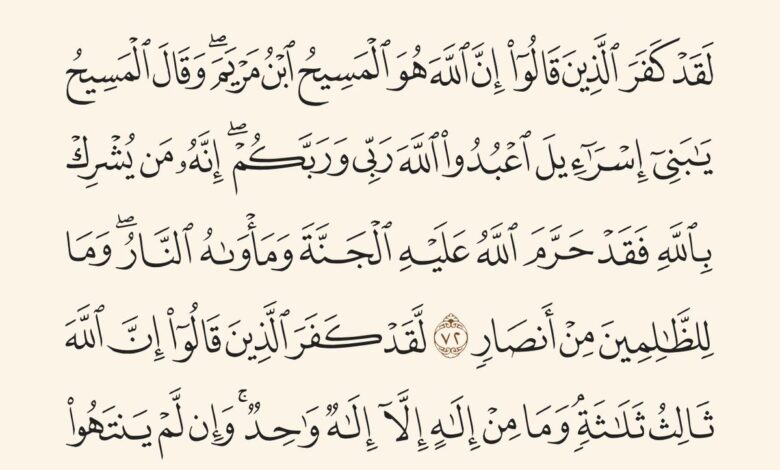 لَقَدْ كَفَرَ ٱلَّذِينَ قَالُوٓا۟ إِنَّ ٱللَّهَ هُوَ ٱلْمَسِيحُ ٱبْنُ مَرْيَمَ ۖ وَقَالَ ٱلْمَسِيحُ
يَـٰبَنِىٓ إِسْرَٰٓءِيلَ ٱعْبُدُوا۟ ٱللَّهَ رَبِّى وَرَبَّكُمْ ۖ إِنَّهُۥ مَن يُشْرِكْ
بِٱللَّهِ فَقَدْ حَرَّمَ ٱللَّهُ عَلَيْهِ ٱلْجَنَّةَ وَمَأْوَىٰهُ ٱلنَّارُ ۖ وَمَا
لِلظَّـٰلِمِينَ مِنْ أَنصَارٍ ٧٢ لَّقَدْ كَفَرَ ٱلَّذِينَ قَالُوٓا۟ إِنَّ ٱللَّهَ
ثَالِثُ ثَلَـٰثَةٍ وَمَا مِنْ إِلَـٰهٍ إِلَّآ إِلَـٰهٌ وَٰحِدٌ ۚ وَإِن لَّمْ يَنتَهُوا۟